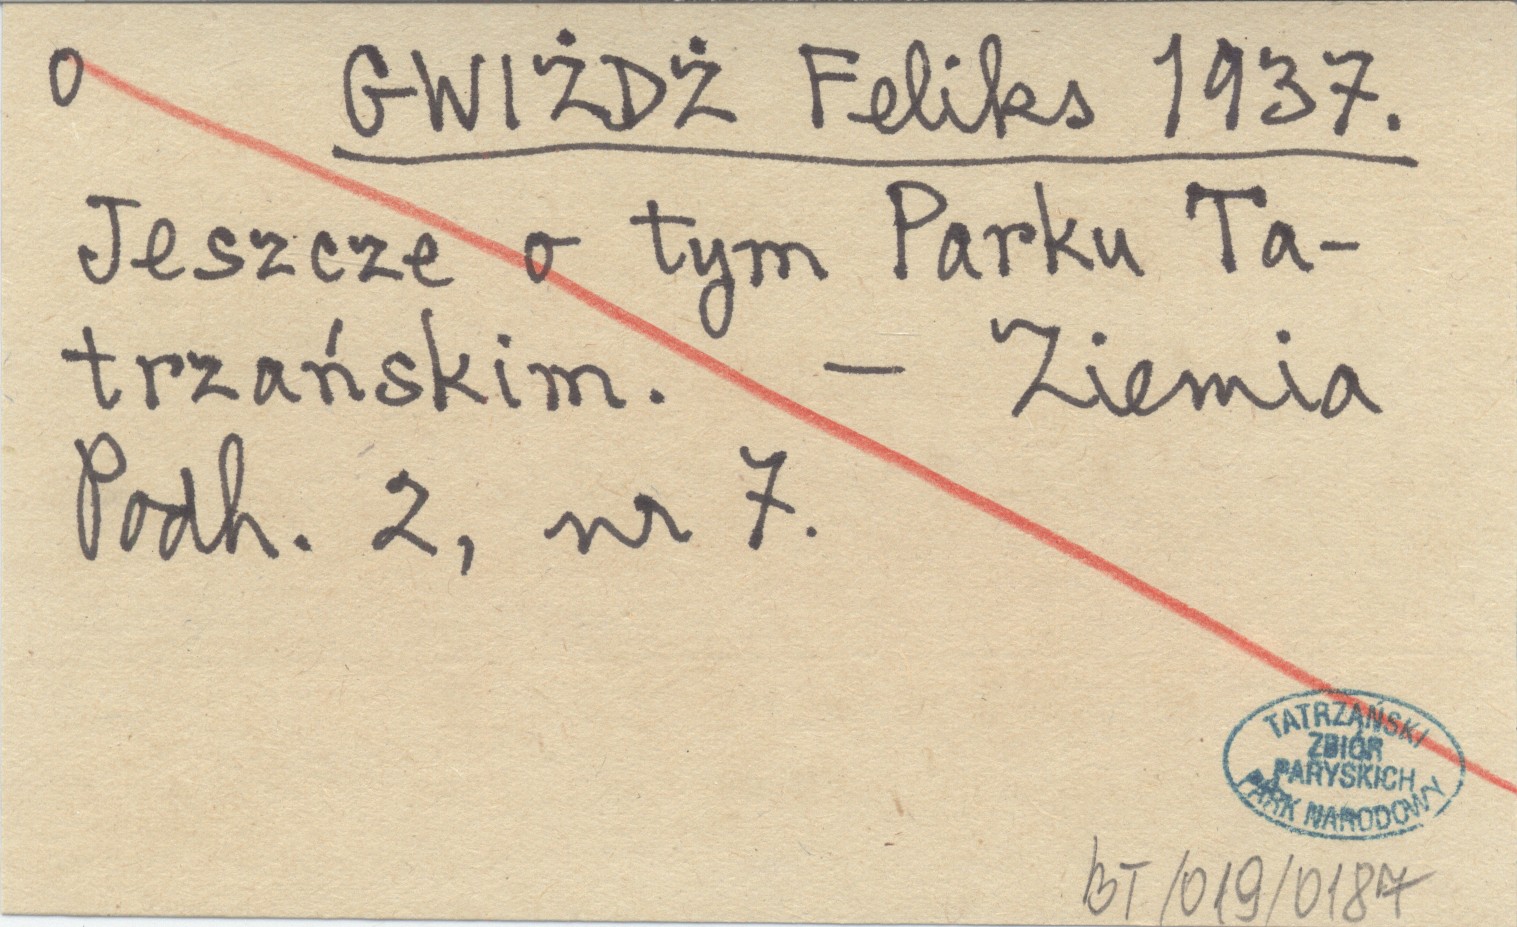 o GWIŻDŻ Feliks 1937.
Jeszcze o tym Parku Ta-
trzańskim. — Ziemia
Podh. 2, nr 7.
TATRZAŃSKI
ZBIÓR
PARYSKICH
PARK NARODOWY
BT/019/0187